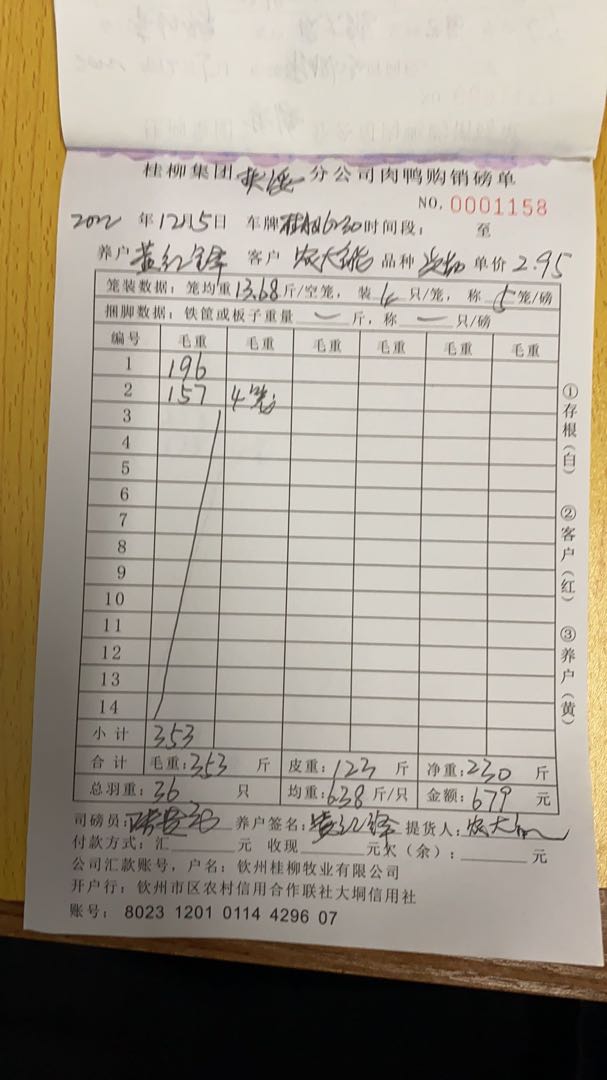 桂柳集团 分公司肉鸭购销磅单
NO. 0001158
2022 年 12月15日 车牌 桂 6230 时间段： 至
养户 黄红锋 客户 农大 品种 单价 2.95
笼装数据：笼均重 13.68 斤/空笼， 装 4 只/笼， 称 5 笼/磅
捆脚数据：铁筐或板子重量 — 斤，称 — 只/磅
编号 毛重 毛重 毛重 毛重 毛重 毛重
1 196
2 157 4笼
3
4
5
6
7
8
9
10
11
12
13
14
小计 353
合计 毛重：353 斤 皮重：123 斤 净重：230 斤
总羽重：36 只 均重：6.38 斤/只 金额：679 元
司磅员： 养户签名：黄红锋 提货人：农大
付款方式：汇 元 收现 元欠（余）： 元
公司汇款账号，户名：钦州桂柳牧业有限公司
开户行：钦州市区农村信用合作联社大垌信用社
账号： 8023 1201 0114 4296 07
①存根（白） ②客户（红） ③养户（黄）